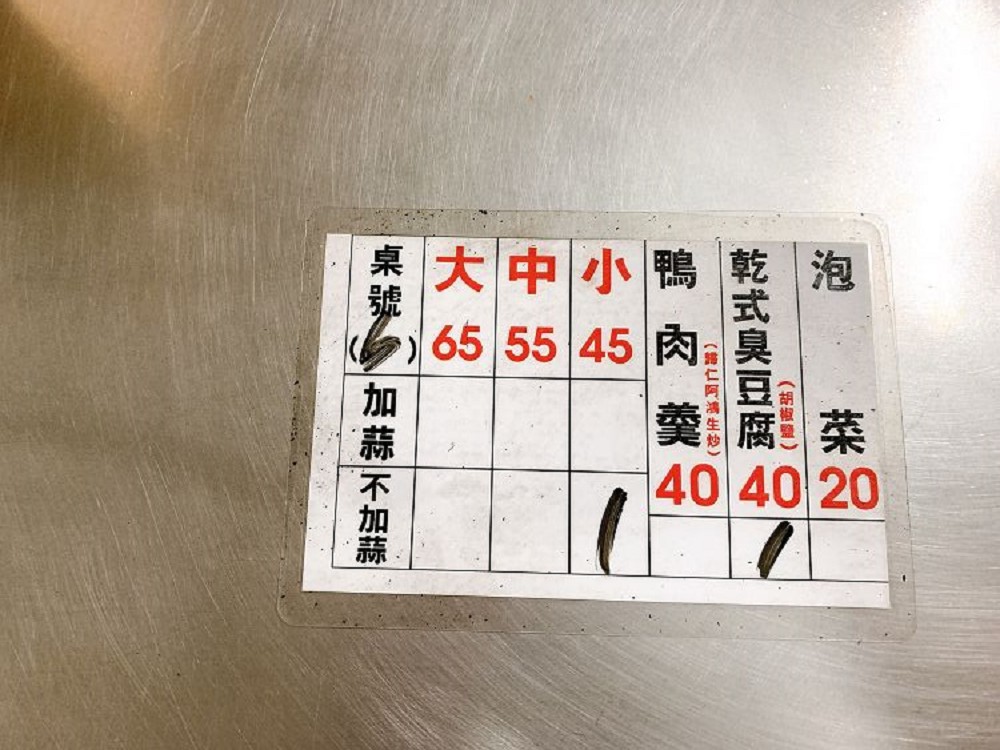 桌號
( )
大
65
中
55
小
45
鴨肉羹
(歸仁阿鴻生炒)
40
乾式臭豆腐
(胡椒鹽)
40
泡菜
20
加蒜
不加蒜